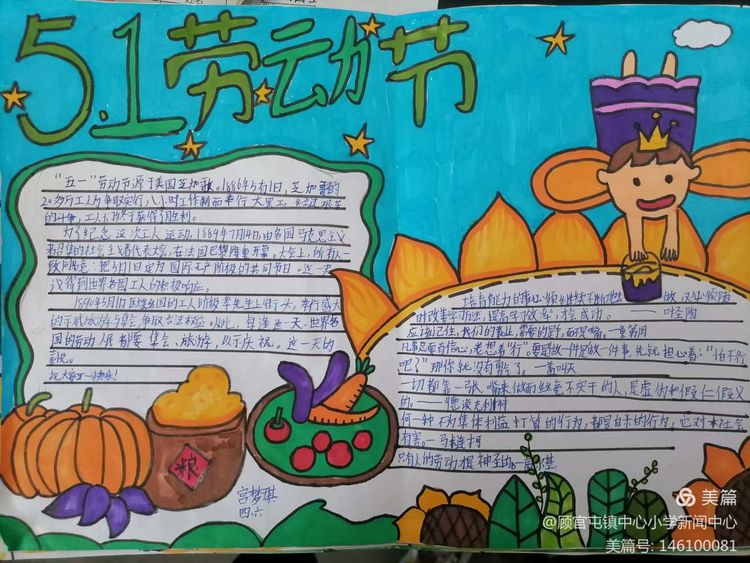 5.1劳动节
"五一"劳动节源于美国芝加哥。1886年5月1日,芝加哥的
20多万工人为争取实行八小时工作制而举行大罢工,经过艰苦
的斗争,工人们终于获得了胜利。
为了纪念这次工人运动,1889年7月14日,由各国马克思主义
者召集的社会主义者代表大会,在法国巴黎隆重开幕。大会上,所有人
一致同意:把5月1日定为国际无产阶级的共同节日。这一
决得到世界各国工人的积极响应。
1890年5月1日欧美各国的工人阶级率先走上街头,举行盛大
的示威游行与集会,争取合法权益。从此,每逢这一天,世界各
国的劳动人民都要集会、游行,以示庆祝。这一天的
祝大家五一快乐!
做,又必须随
时改善学习方法,提高学习效率,才会成功。——叶圣陶
应该记住,我们的事业,需要的是手,而不是嘴。——童第周
凡事总要有信心,老想着"行"。要是做一件事,先就担心着:"怕不行
吧?"那你就没有勇气了。——盖叫天
一切都靠一张嘴来做而丝毫不实干的人,是虚伪和假仁假义
的。——德谟克利特
何一种不为集体利益打算的行为,都是自杀的行为,它对社会
有害。——马卡连柯
只有人的劳动才是神圣的。——高尔基
粮
宫梦琪
四六
美篇
@顾官屯镇中心小学新闻中心
美篇号: 146100081